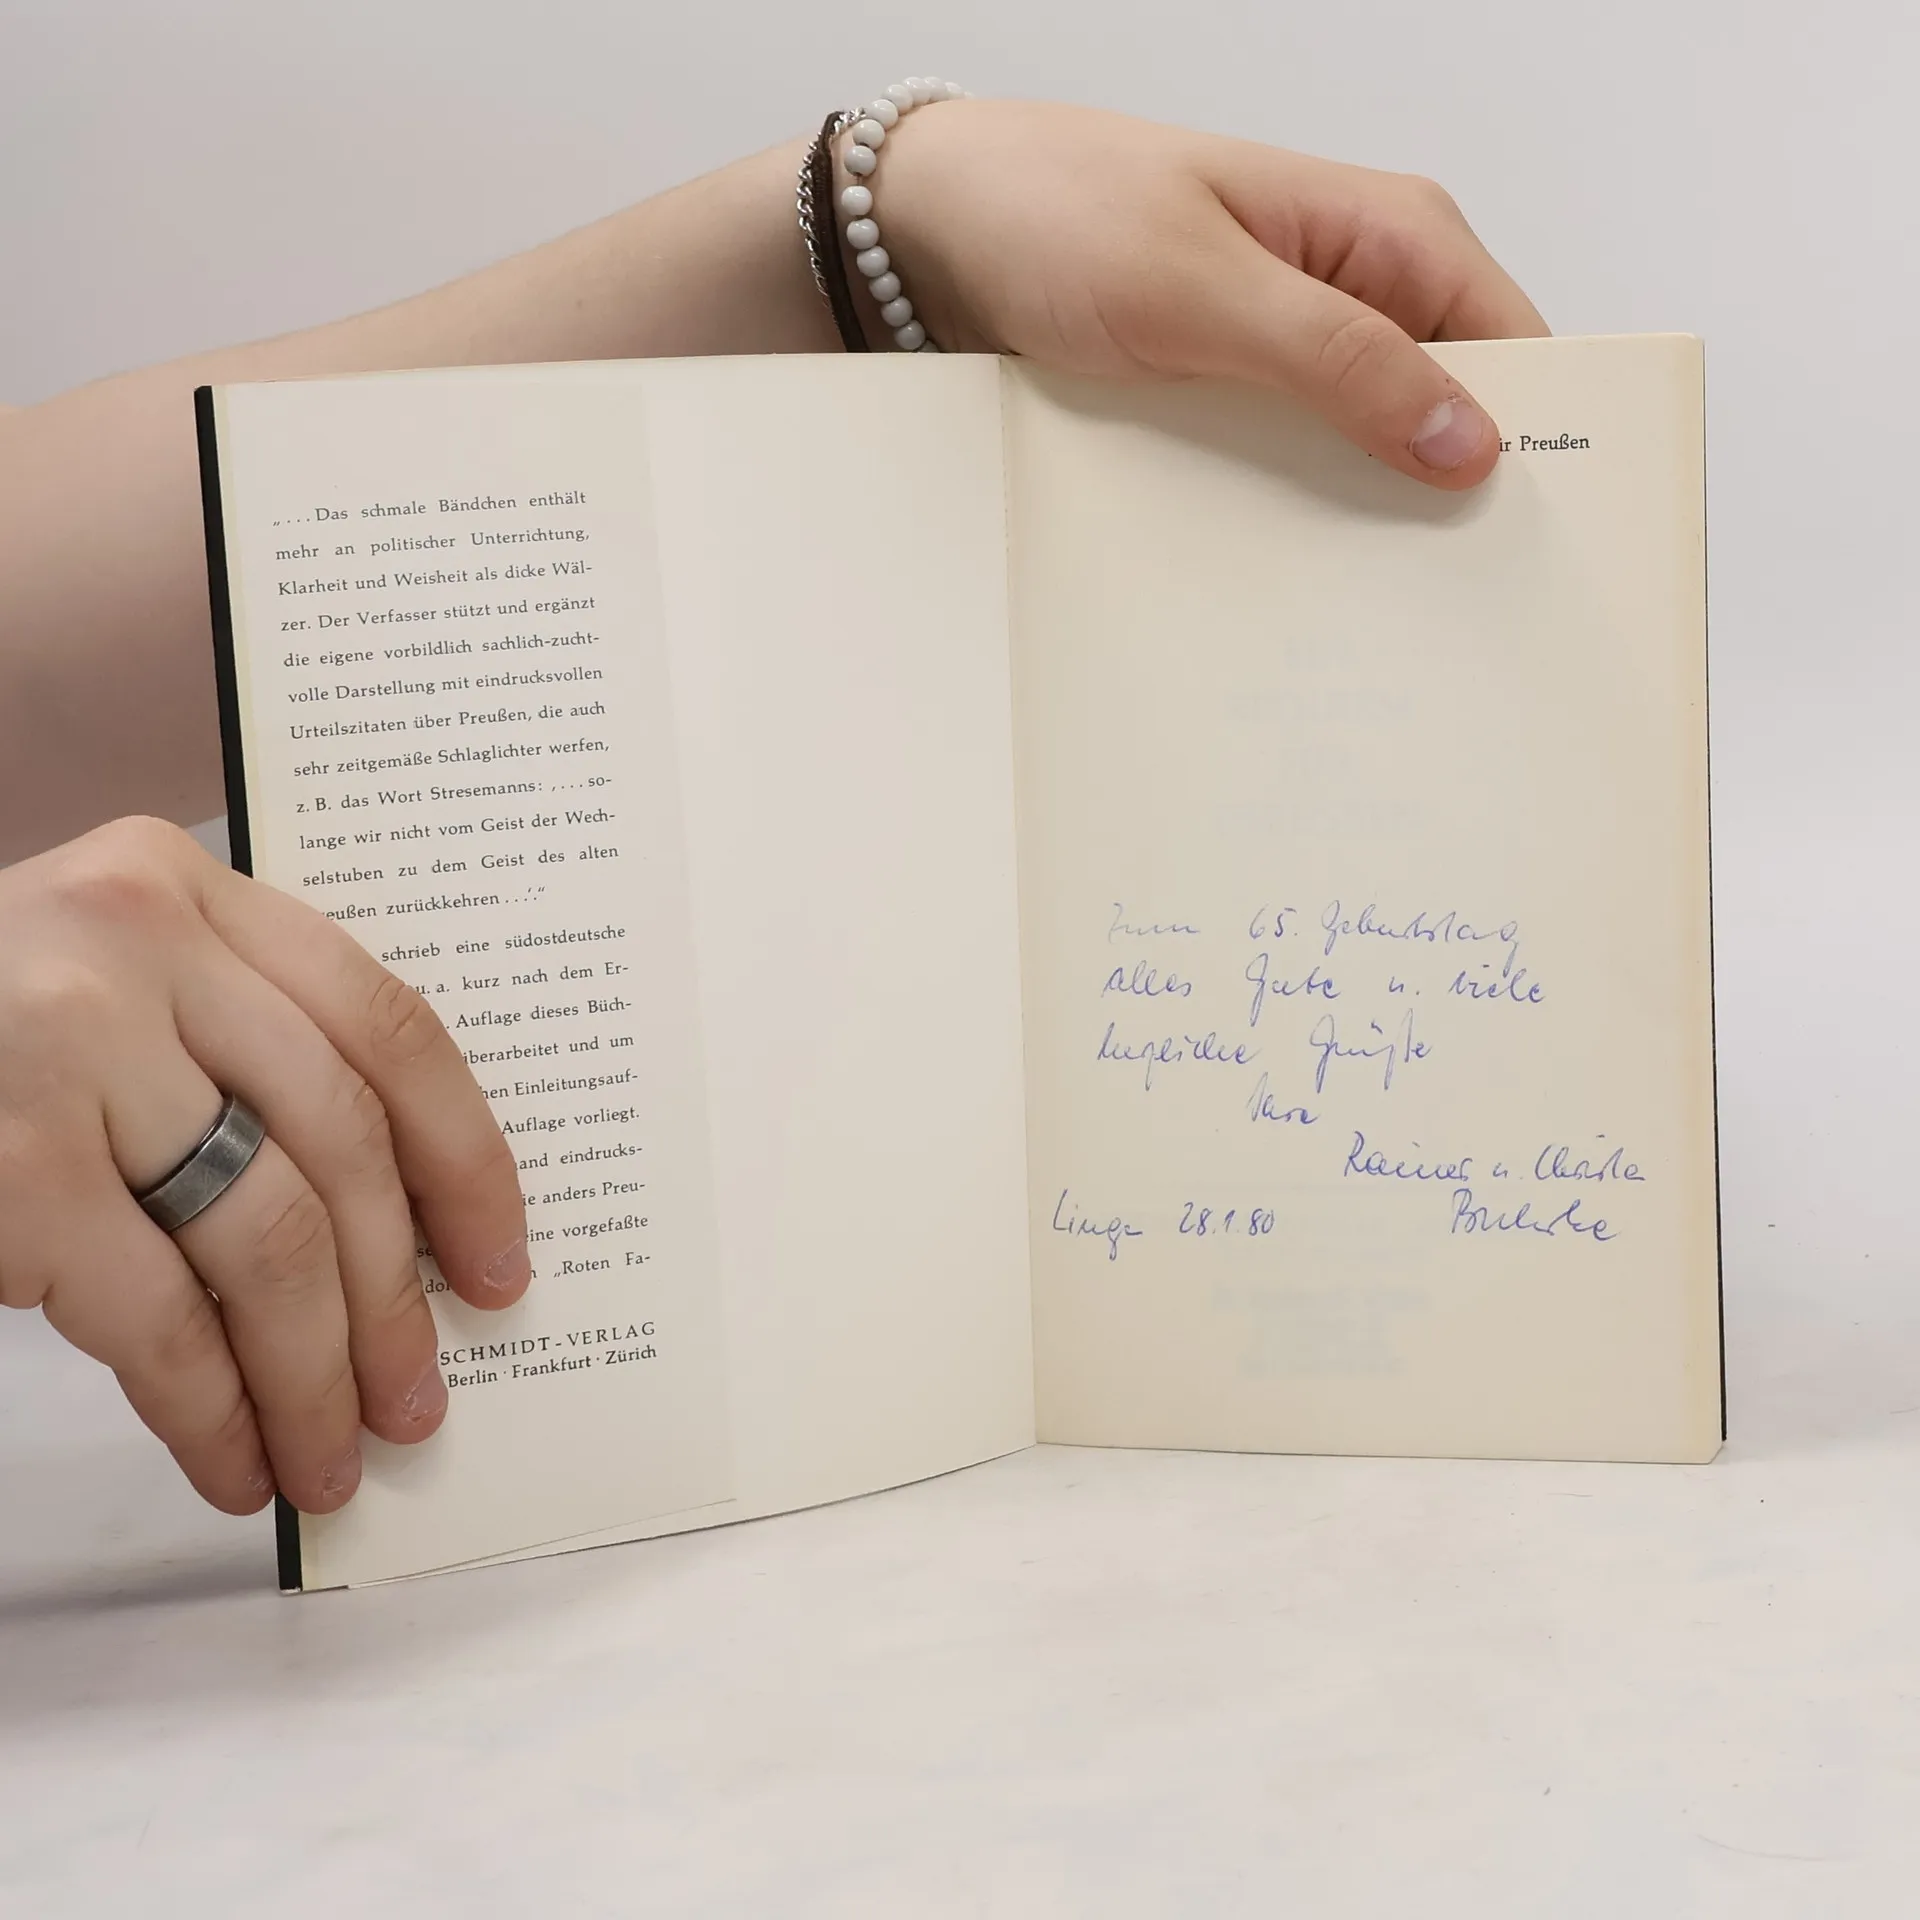 „... Das schmale Bändchen enthält
mehr an politischer Unterrichtung,
Klarheit und Weisheit als dicke Wäl-
zer. Der Verfasser stützt und ergänzt
die eigene vorbildlich sachlich-zucht-
volle Darstellung mit eindrucksvollen
Urteilszitaten über Preußen, die auch
sehr zeitgemäße Schlaglichter werfen,
z. B. das Wort Stresemanns: ‚... so-
lange wir nicht vom Geist der Wech-
selstuben zu dem Geist des alten
eußen zurückkehren ...‘.“
schrieb eine südostdeutsche
u. a. kurz nach dem Er-
. Auflage dieses Büch-
überarbeitet und um
hen Einleitungsauf-
Auflage vorliegt.
and eindrucks-
ie anders Preu-
eine vorgefaßte
„Roten Fa-
SCHMIDT-VERLAG
Berlin · Frankfurt · Zürich
ir Preußen
Zum 65. Geburtstag
alles Gute u. viele
herzliche Grüße
Rainer u. Christa
28.1.80